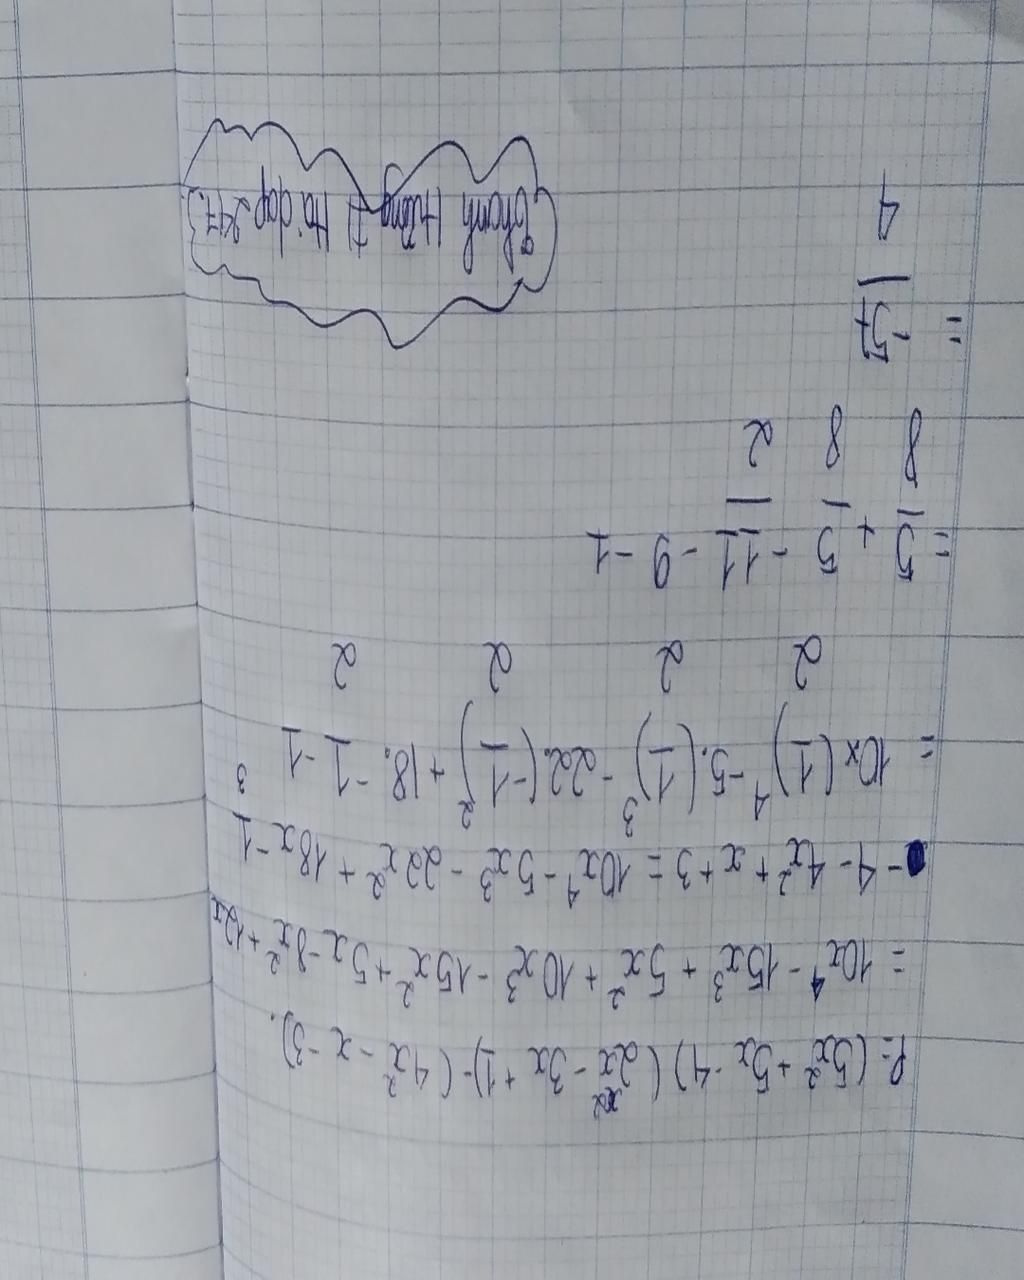 P= (5x² + 5x - 4) (2x² - 3x + 1) - (4x² - x - 3).
= 10x⁴ - 15x³ + 5x² + 10x³ - 15x² + 5x - 8x² + 12x
- 4 - 4x² + x + 3 = 10x⁴ - 5x³ - 22x² + 18x - 1
= 10x (1/2)⁴ - 5. (1/2)³ - 22. (-1/2)² + 18. -1/2 - 1
= 5/8 + 5/8 - 11/2 - 9 - 1
= -57/4
Thanh Hưng || Hỏi đáp 247.3